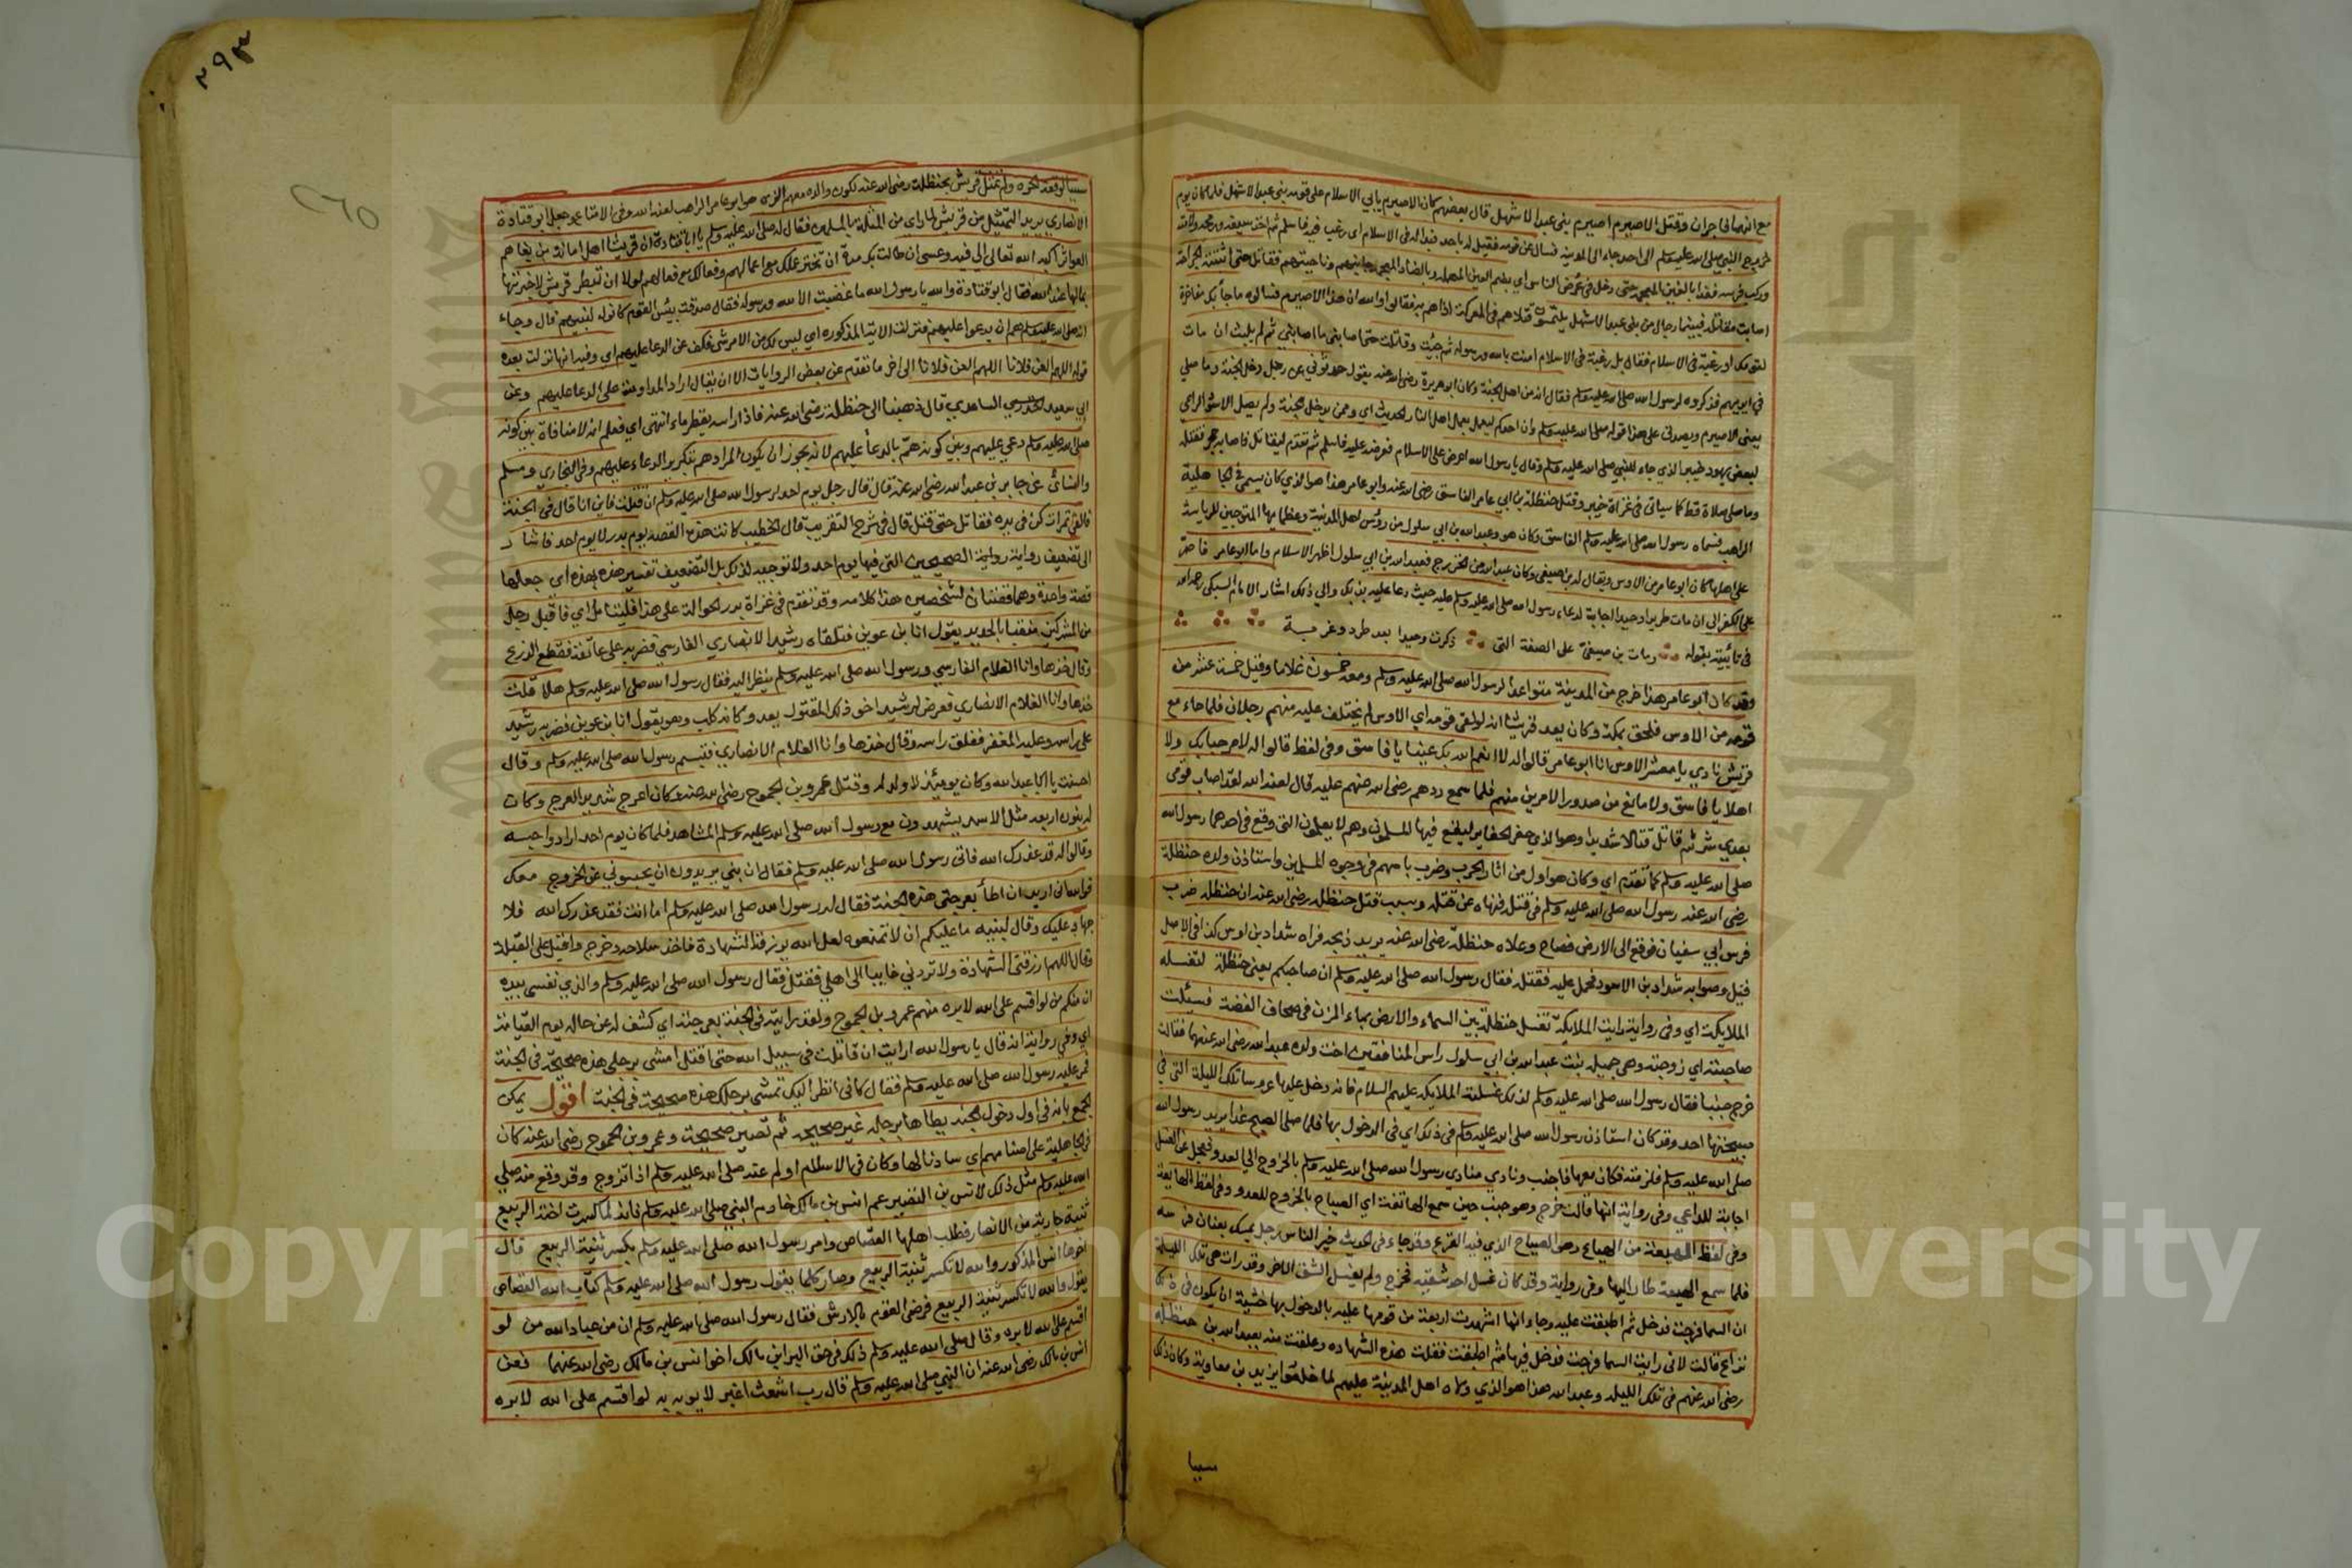 مع انهما في جران وقتل الاصيرم اصيرم بني عبد الاشهل قال بعضهم كان الاصيرم يابي الاسلام على قومه بني عبد الاشهل فلما كان يوم
خروج النبي صلى الله عليه وسلم الى احد جاء الى المدينة فسال عن قومه فقيل له باحد فبدا له في الاسلام اي رغب فيه فاسلم ثم اخذ سيفه ورمحه ولامته
وركب فرسه فغدا بالغين المعجمة حتى دخل في عرض الناس اي بضم العين المهملة وبالضاد المعجمة جانبهم وناحيتهم فقاتل حتى اثبتته الجراحة
اصابت مقاتله فبينما رجال من بني عبد الاشهل يلتمسون قتلاهم في المعركة اذا هم به فقالوا والله ان هذا الاصيرم فسالوه ما جاء بك مفاخرة
لقومك او رغبة في الاسلام فقال بل رغبة في الاسلام امنت بالله ورسوله ثم جيت وقاتلت حتى اصابني ما اصابني ثم لم يلبث ان مات
في ايديهم فذكروه لرسول الله صلى الله عليه وسلم فقال انه من اهل الجنة وكان ابو هريرة رضي الله عنه يقول حدثوني عن رجل دخل الجنة وما صلى
يعني الاصيرم ويصدق على هذا قوله صلى الله عليه وسلم وان احدكم ليعمل بعمل اهل النار الحديث اي وممن يدخل الجنة ولم يصل الاسود الراعي
لبعض يهود خيبر الذي جاء للنبي صلى الله عليه وسلم وقال يا رسول الله اعرض علي الاسلام فعرضه عليه فاسلم ثم تقدم ليقاتل فاصابه حجر فقتله
وما صلى صلاة قط كما سياتي في غزاة خيبر وقتل حنظلة بن ابي عامر الفاسق رضي الله عنه وابو عامر هذا هو الذي كان يسمى في الجاهلية
الراهب فسماه رسول الله صلى الله عليه وسلم الفاسق وكان هو وعبد الله بن ابي سلول من رؤس اهل المدينة وعظمايها المتوجين للرياسة
على اهلها كان ابو عامر من الاوس ويقال له بن صيفي وكان عبد الله من الخزرج فعبد الله بن ابي سلول اظهر الاسلام واما ابو عامر فاصر
على الكفر الى ان مات طريدا وحيدا اجابة لدعاء رسول الله صلى الله عليه وسلم عليه حيث دعا عليه بذلك والي ذلك اشار الامام السبكي رحمه الله
في تائيته بقوله ومات بن صيفي على الصفة التي ذكرت وحيدا بعد طرد وغربة
وقد كان ابو عامر هذا خرج من المدينة متواعدا لرسول الله صلى الله عليه وسلم ومعه خمسون غلاما وقيل خمسة عشر من
قومه من الاوس فلحق بمكة وكان يعد قريشا انه لو لقي قومه اي الاوس لم يختلف عليه منهم رجلان فلما جاء مع
قريش نادي يا معشر الاوس انا ابو عامر قالوا له لا انعم الله بك عينا يا فاسق وفي لفظ قالوا له لا مرحبا بك ولا
اهلا يا فاسق ولا مانع من صدور الامرين منهم فلما سمع ردهم رضي الله عنهم عليه قال لعنه الله لقد اصاب قومي
بعدي شر ثم قاتل قتالا شديدا وهو الذي حفر الحفاير ليقع فيها المسلمون وهم لا يعلمون التي وقع في احدهما رسول الله
صلى الله عليه وسلم كما تقدم اي وكان هو اول من اثار الحرب وضرب باسهم في وجوه المسلمين واستاذن ولده حنظلة
رضي الله عنه رسول الله صلى الله عليه وسلم في قتله فنهاه عن قتله وسبب قتل حنظلة رضي الله عنه ان حنظلة ضرب
فرس ابي سفيان فوقع الى الارض فصاح وعلاه حنظلة رضي الله عنه يريد ذبحه فراه شداد بن اوس كذا في الاصل
قيل وصوابه شداد بن الاسود فحمل عليه فقتله فقال رسول الله صلى الله عليه وسلم ان صاحبكم يعني حنظلة لتغسله
الملايكة اي وفي رواية رايت الملايكة تغسل حنظلة بين السماء والارض بماء المزن في صحاف الفضة فسئلت
صاحبته اي زوجته وهي جميلة بنت عبد الله بن ابي سلول راس المنافقين اخت ولده عبد الله رضي الله عنهما فقالت
خرج جنبا فقال رسول الله صلى الله عليه وسلم لذلك غسلته الملايكة عليهم السلام فانه دخل عليها عروسا تلك الليلة التي في
صبيحتها احد وقد كان استاذن رسول الله صلى الله عليه وسلم في ذلك اي في الدخول بها فلما صلى الصبح غدا يريد رسول الله
صلى الله عليه وسلم فلزمته فكان معها فاجنب ونادي منادي رسول الله صلى الله عليه وسلم بالخروج الى العدو فعجل عن الغسل
اجابة للداعي وفي رواية انها قالت خرج وهو جنب حين سمع الهاتفة اي الصياح بالخروج للعدو وفي لفظ الهايعة
وفي لفظ الهيعة من الهياع وهو الصياح الذي فيه الفزع وقد جاء في الحديث خير الناس رجل يمسك بعنان فرسه
فلما سمع الهيعة طار اليها وفي رواية وقد كان غسل احد شقيه فخرج ولم يغسل الشق الاخر وقد رات هي تلك الليلة
ان السما فرجت فدخل ثم اطبقت عليه وجاء انها اشهدت اربعة من قومها عليه بالدخول بها خشية ان يكون في ذلك
نزاع قالت لاني رايت السما فرجت فدخل فيها ثم اطبقت فقلت هذه الشهادة وعلقت منه بعبد الله بن حنظلة
رضي الله عنهم في تلك الليلة وعبد الله هذا هو الذي ولاه اهل المدينة عليهم لما خلعوا يزيد بن معاوية وكان ذلك
سببا
٢٩٣
سببا لوقعة الحرة ولم تمثل قريش بحنظلة رضي الله عنه لكون والده معهم هو ابو عامر الراهب لعنه الله وفي الامتاع وجعل ابو قتادة
الانصاري يريد التمثيل من قريش لما راى من المثلة بالمسلمين فقال له صلى الله عليه وسلم يا ابا قتادة ان قريشا اهل امانة من بغاهم
العواثر اكبه الله تعالى الى فيه وعسى ان طالت بك مدة ان تحقر عملك مع اعمالهم وفعالك مع فعالهم لولا ان تبطر قريش لاخبرتها
بمالها عند الله فقال ابو قتادة والله يا رسول الله ما غضبت الا لله ورسوله فقال صدقت بئس القوم كانوا لنبيهم قال وجاء
انه صلى الله عليه وسلم هم ان يدعوا عليهم فنزلت الاية المذكورة اي ليس لك من الامر شي فكف عن الدعا عليهم اي وفيه انها نزلت بعد
قوله اللهم العن فلانا اللهم العن فلانا الى اخر ما تقدم عن بعض الروايات الا ان يقال اراد المداومة على الدعا عليهم وعن
ابي سعيد الساعدي قال ذهبنا الى حنظلة رضي الله عنه فاذا راسه يقطر ماء انتهى اي فعلم انه لا منافاة بين كونه
صلى الله عليه وسلم دعى عليهم وبين كونه هم بالدعا عليهم لانه يجوز ان يكون المراد هم بتكرير الدعاء عليهم وفي البخاري ومسلم
والنسائي عن جابر بن عبد الله رضي الله عنه قال قال رجل يوم احد لرسول الله صلى الله عليه وسلم ان قتلت فاين انا قال في الجنة
فالقى تمرات كن في يده فقاتل حتى قتل قال في شرح التقريب قال الخطيب كانت هذه القصة يوم بدر لا يوم احد فاشار
الى تضعيف رواية الصحيحين التي فيها يوم احد ولا توجيه لذلك بل التضعيف تفسير هذه بهذه اي جعلها
قصة واحدة وهما قصتان لشخصين هذا كلامه وقد تقدم في غزاة بدر الحوالة على هذا فليتامل اي فاقبل رجل
من المشركين مقنعا بالحديد يقول انا بن عويف فتلقاه رشيد الانصاري الفارسي فضربه على عاتقه فقطع الدرع
وقال خذها وانا الغلام الفارسي ورسول الله صلى الله عليه وسلم ينظر اليه فقال رسول الله صلى الله عليه وسلم هلا قلت
خذها وانا الغلام الانصاري فعرض لرشيد اخو ذلك المقتول يعدو كانه كلب وهو يقول انا بن عويف فضربه رشيد
على راسه وعليه المغفر ففلق راسه وقال خذها وانا الغلام الانصاري فتبسم رسول الله صلى الله عليه وسلم وقال
احسنت يا ابا عبد الله وكان يومئذ لا ولد له وقتل عمرو بن الجموح رضي الله عنه وكان اعرج شديد العرج وكان
له بنون اربعة مثل الاسد يشهدون مع رسول الله صلى الله عليه وسلم المشاهد فلما كان يوم احد ارادوا حبسه
وقالوا له قد عذرك الله فاتى رسول الله صلى الله عليه وسلم فقال ان بني يريدون ان يحبسوني عن الخروج معك
فوالله اني اريد ان اطأ بعرجتي هذه الجنة فقال له رسول الله صلى الله عليه وسلم اما انت فقد عذرك الله فلا
جهاد عليك وقال لبنيه ما عليكم ان لا تمنعوه لعل الله يرزقه الشهادة فاخذ سلاحه وخرج واقبل على القبلة
وقال اللهم ارزقني الشهادة ولا تردني خايبا الى اهلي فقتل فقال رسول الله صلى الله عليه وسلم والذي نفسي بيده
ان منكم من لو اقسم على الله لابره منهم عمرو بن الجموح ولقد رايته في الجنة بعرجته اي كشف له عن حاله يوم القيامة
اي وفي رواية انه قال يا رسول الله ارايت ان قاتلت في سبيل الله حتى اقتل امشي برجلي هذه صحيحة في الجنة
فمر عليه رسول الله صلى الله عليه وسلم فقال كاني انظر اليك تمشي برجلك هذه صحيحة في الجنة اقول يمكن
الجمع بانه في اول دخول الجنة يطاها برجله غير صحيحة ثم تصير صحيحة وعمرو بن الجموح رضي الله عنه كان
في الجاهلية على اصنامهم اي سادنا لها وكان في الاسلام اولم عنه صلى الله عليه وسلم اذا تزوج وقد وقع منه صلى
الله عليه وسلم مثل ذلك لانس بن النضير عم انس بن مالك خادم النبي صلى الله عليه وسلم فانه لما كسرت اخته الربيع
ثنية جارية من الانصار فطلب اهلها القصاص وامر رسول الله صلى الله عليه وسلم بكسر ثنية الربيع قال
اخوها انس المذكور والله لا تكسر ثنية الربيع وصار كلما يقول رسول الله صلى الله عليه وسلم كتاب الله القصاص
يقول والله لا تكسر ثنية الربيع فرضي القوم بالارش فقال رسول الله صلى الله عليه وسلم ان من عباد الله من لو
اقسم على الله لابره وقال صلى الله عليه وسلم ذلك في حق البراء بن مالك اخو انس بن مالك رضي الله عنهما فعن
انس بن مالك رضي الله عنه ان النبي صلى الله عليه وسلم قال رب اشعث اغبر لا يوبه به لو اقسم على الله لابره
Copyright © King Saud University